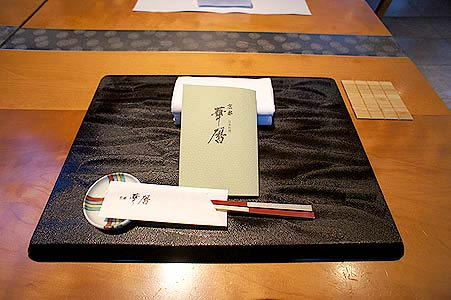 京都
華暦
京都 華暦